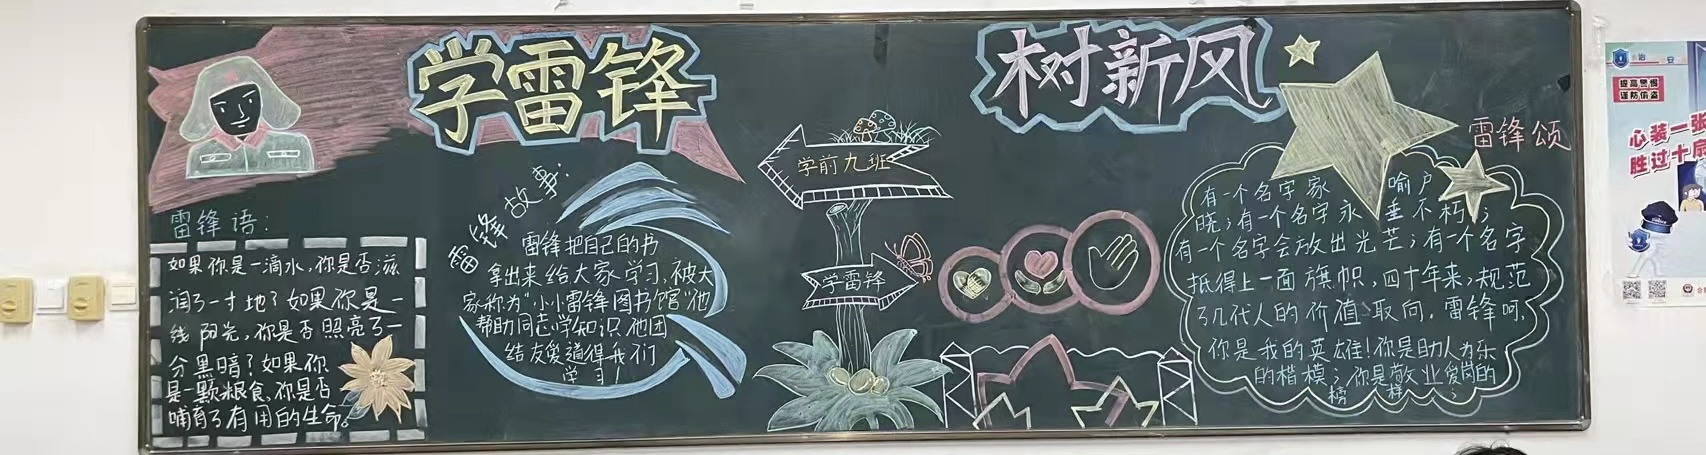 学雷锋
树新风
雷锋语：
如果你是一滴水，你是否滋
润了一寸地？如果你是一
线阳光，你是否照亮了一
分黑暗？如果你
是一颗粮食，你是否
哺育了有用的生命。
雷锋故事：
雷锋把自己的书
拿出来给大家学习，被大
家称为“小小雷锋图书馆”他
帮助同志学知识他团
结友爱道得我们
学习！
学前九班
学雷锋
雷锋颂
有一个名字家喻户
晓；有一个名字永垂不朽；
有一个名字会放出光芒；有一个名字
抵得上一面旗帜，四十年来，规范
了几代人的价值取向。雷锋呵，
你是我的英雄！你是助人为乐
的楷模；你是敬业爱岗的
榜样；
治安
提高警惕
谨防偷盗
心装一张
胜过十扇